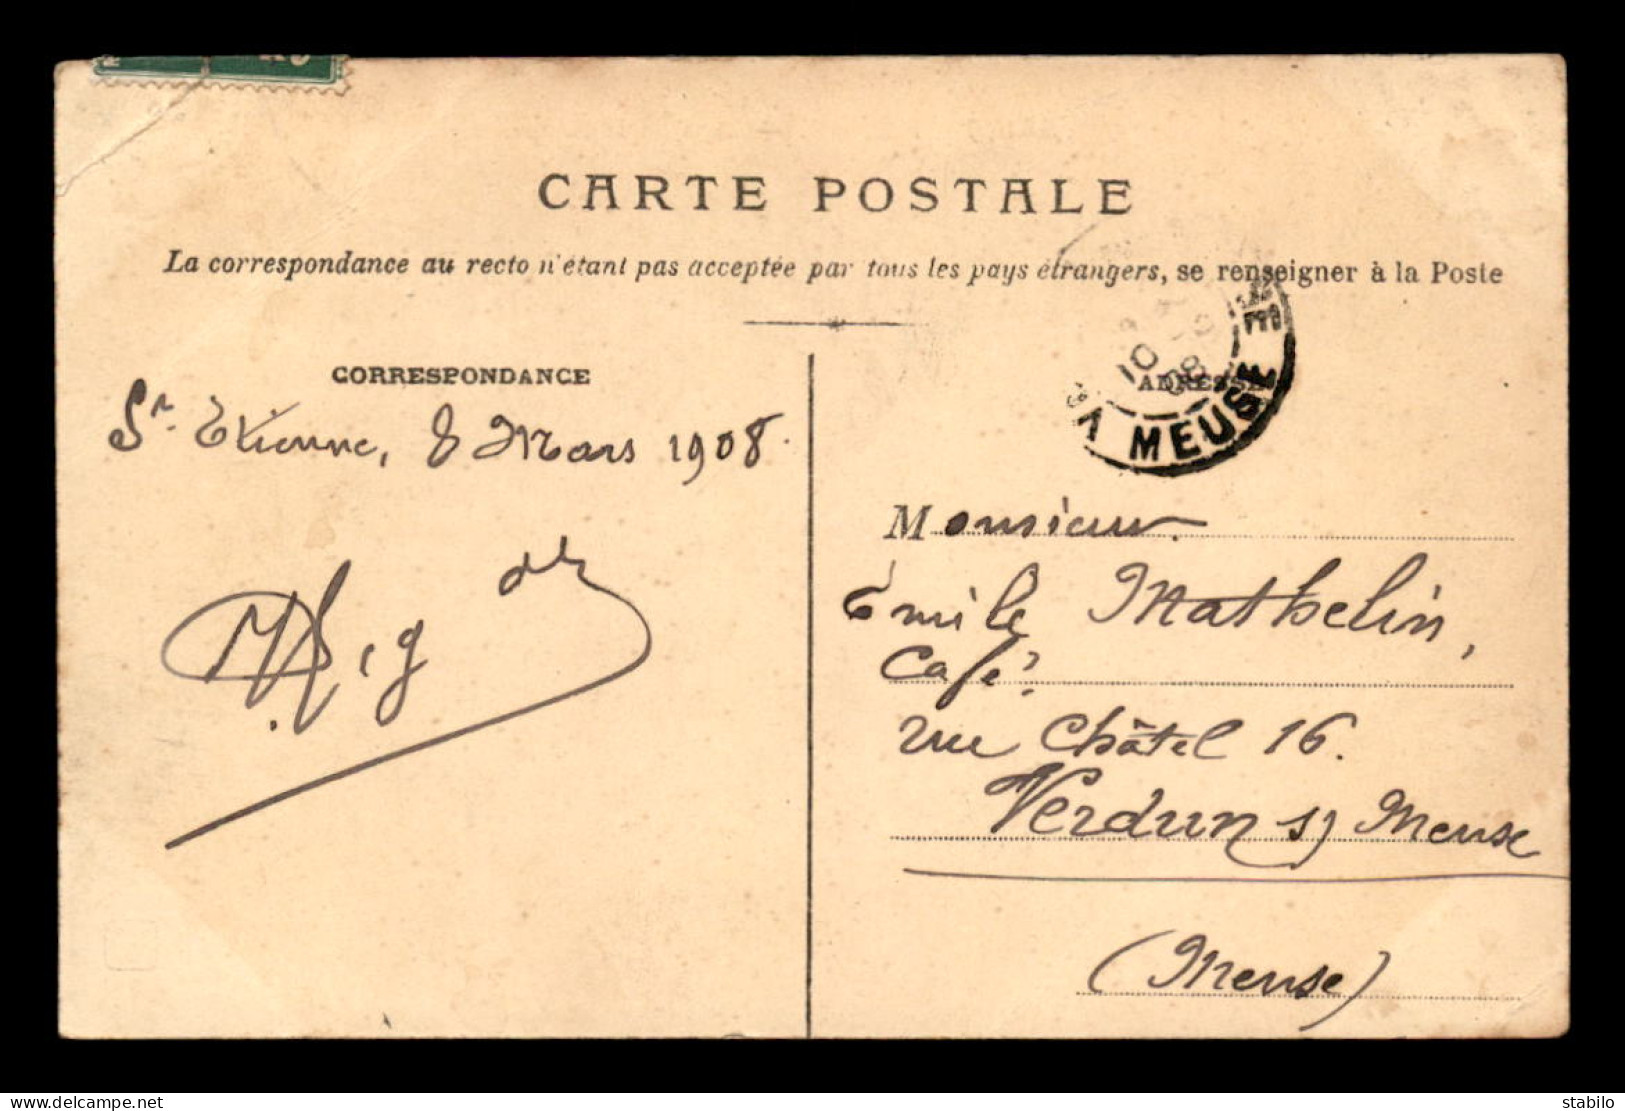 CARTE POSTALE
La correspondance au recto n'étant pas acceptée par tous les pays étrangers, se renseigner à la Poste
CORRESPONDANCE
St Etienne, 8 Mars 1908.
ADRESSE
10
08
MEUSE
Monsieur
Emile Mathelin,
Café
rue Châtel 16.
Verdun s/ Meuse
(Meuse)
www.delcampe.net
stabilo